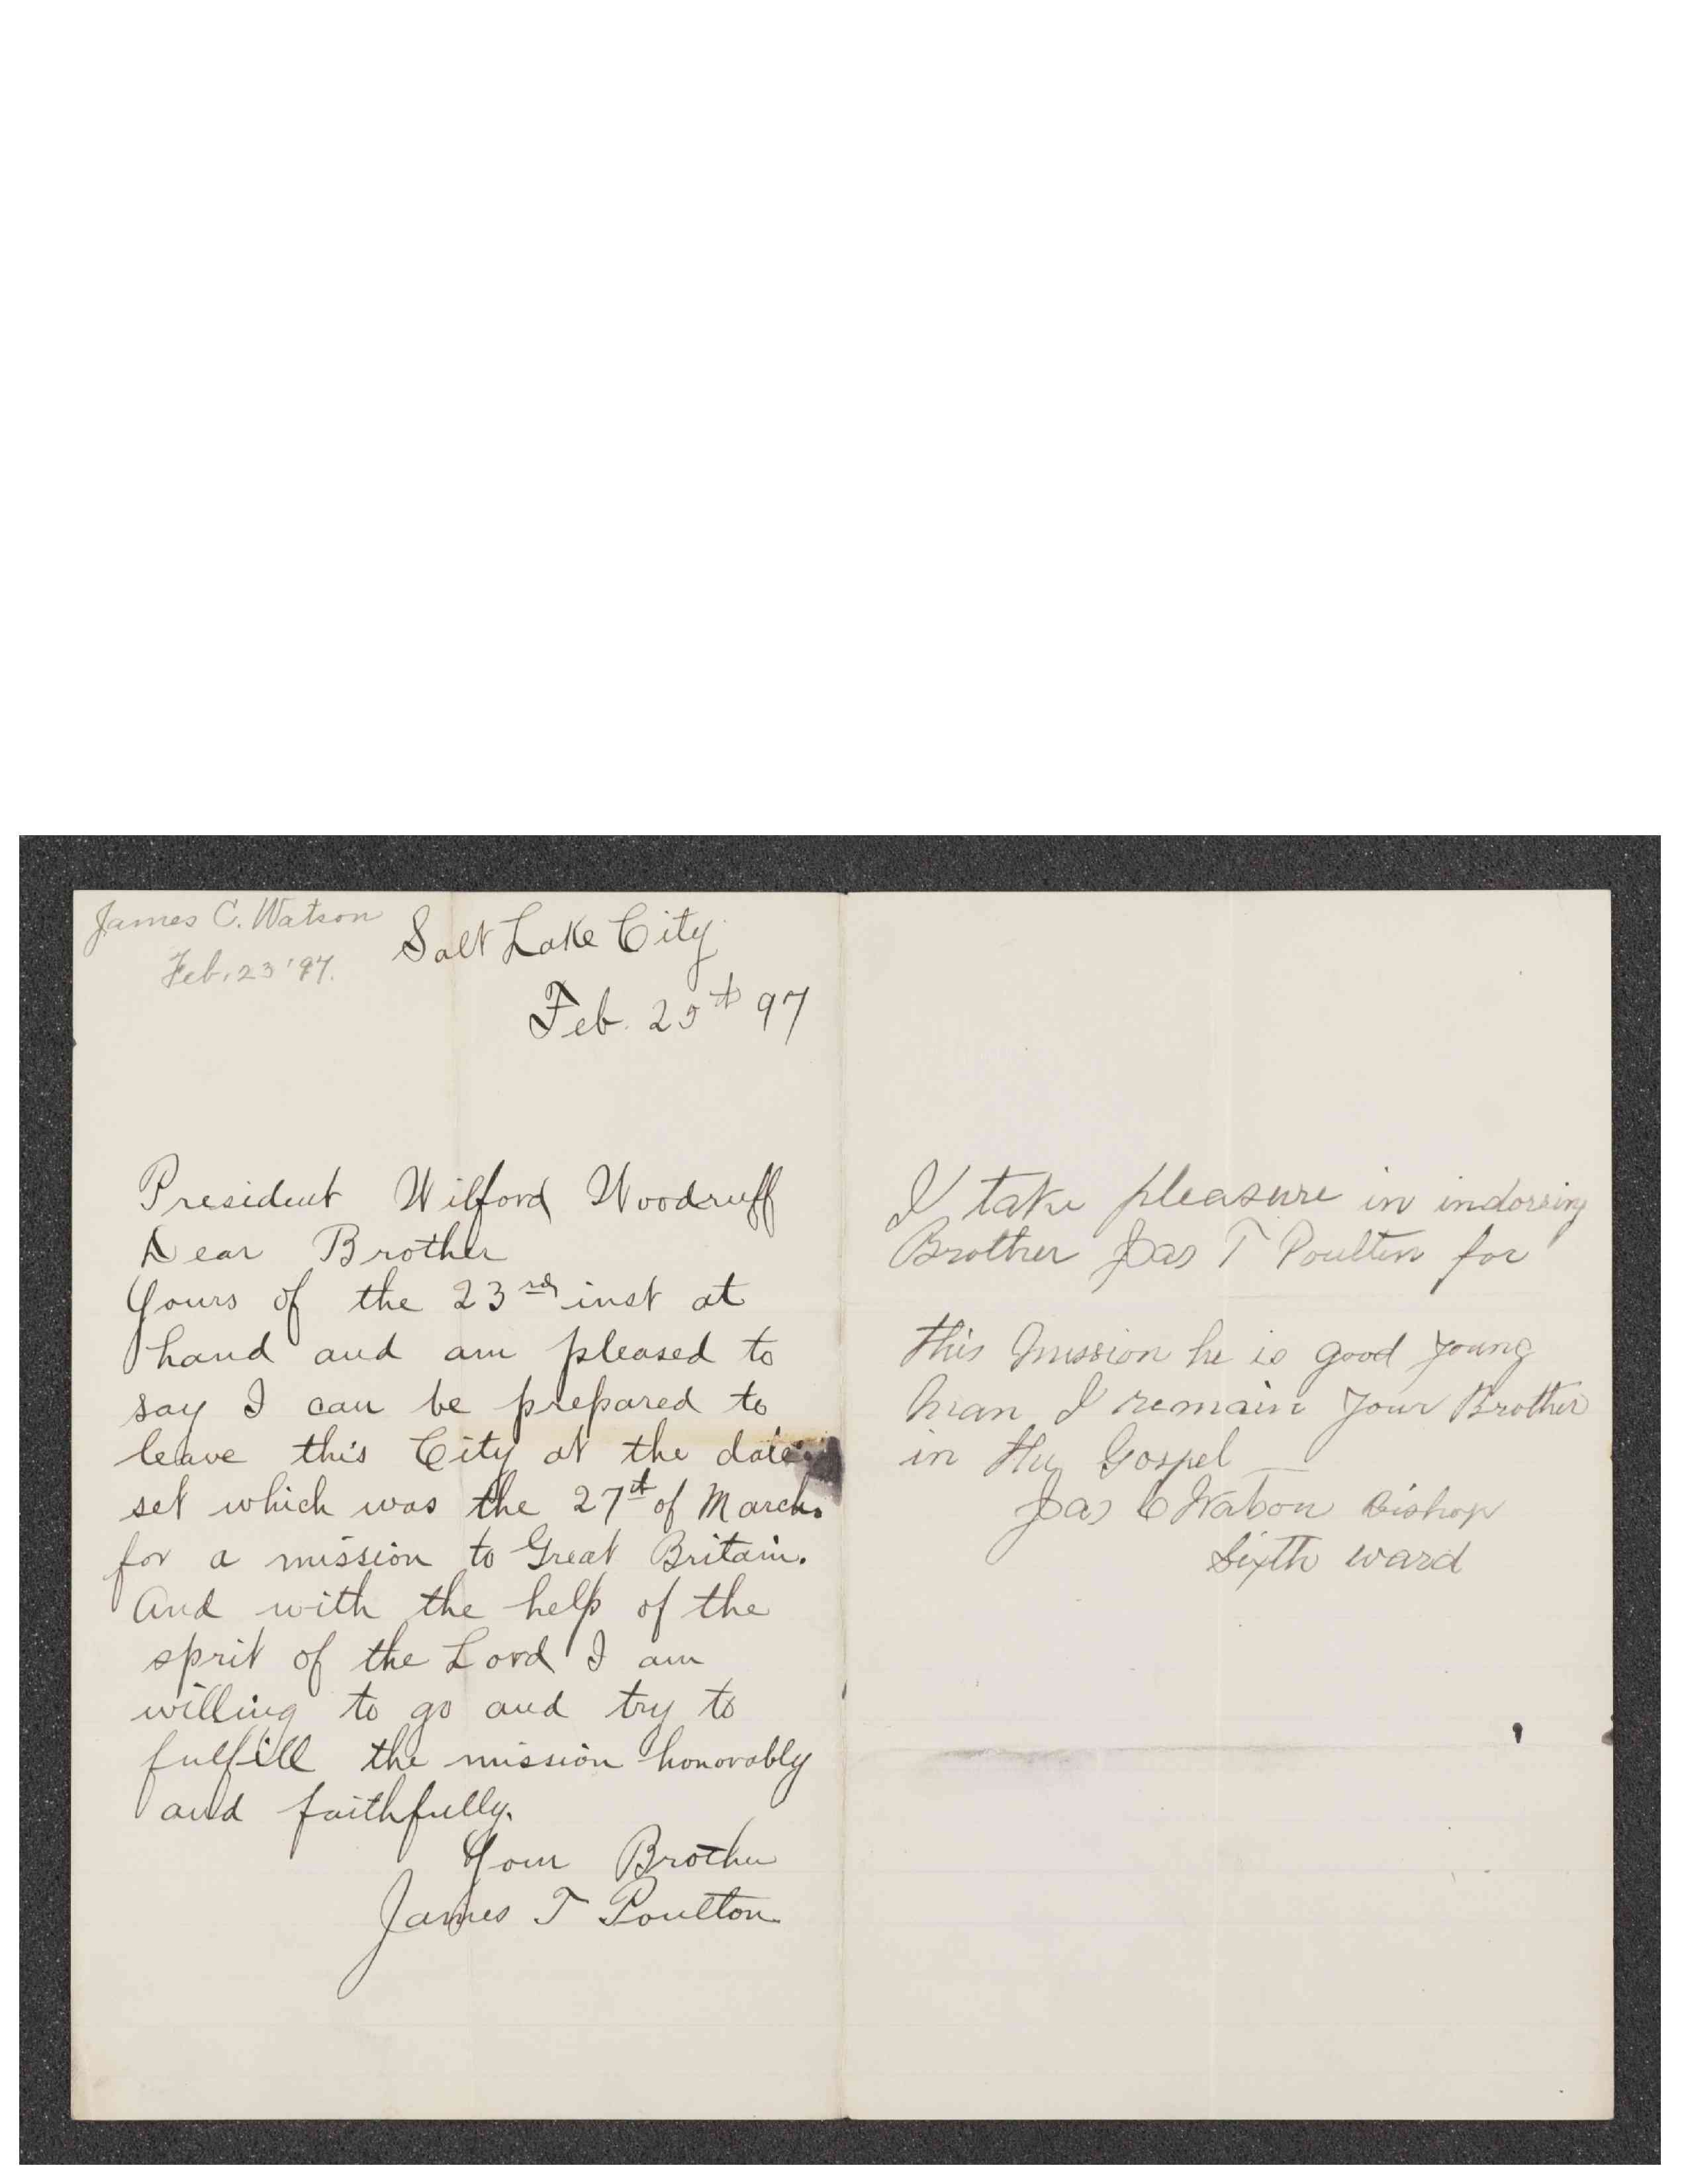 James C. Watson
Feb. 23 '97.
Salt Lake City
Feb. 25th 97
President Wilford Woodruff
Dear Brother
Yours of the 23rd inst at
hand and am pleased to
say I can be prepared to
leave this City at the date
set which was the 27th of March.
for a mission to Great Britain.
And with the help of the
sprit of the Lord I am
willing to go and try to
fulfill the mission honorably
and faithfully.
Your Brother
James T Poulton
I take pleasure in indorsing
Brother Jas T Poulton for
this mission he is good young
man I remain your Brother
in the Gospel
Jas C Watson Bishop
Sixth ward